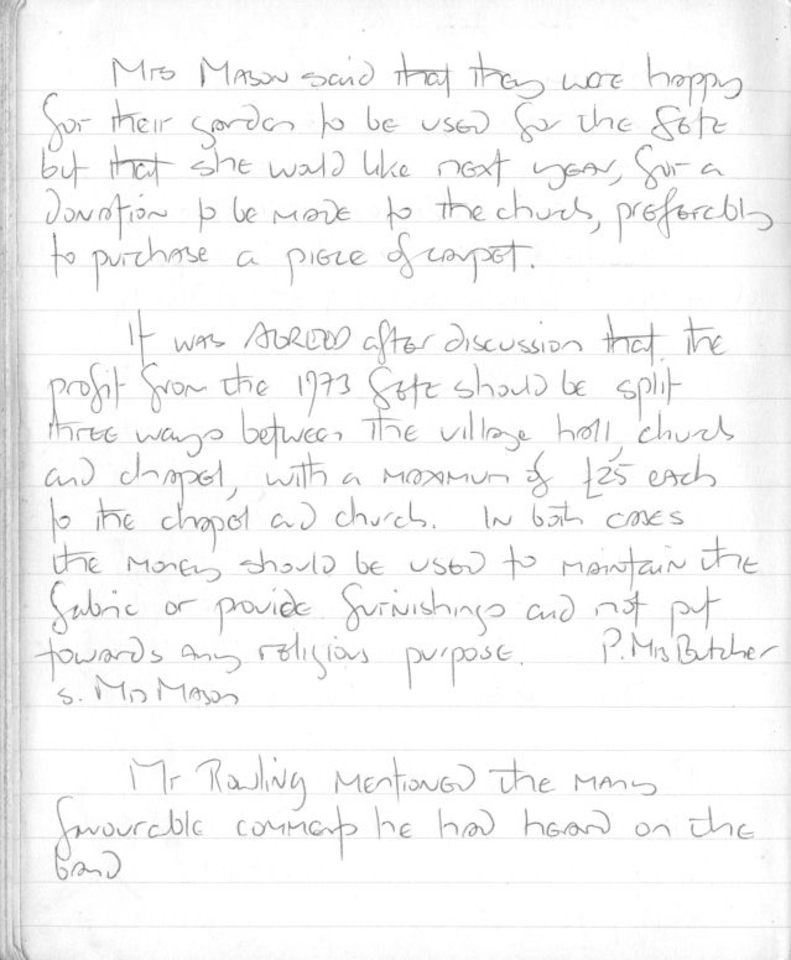 Mrs Mason said that they were happy
for their garden to be used for the fete
but that she would like next year, for a
donation to be made to the church, preferably
to purchase a piece of carpet.
It was AGREED after discussion that the
profit from the 1973 fete should be split
three ways between the village hall, church
and chapel, with a maximum of £25 each
to the chapel and church. In both cases
the money should be used to maintain the
fabric or provide furnishings and not put
towards any religious purpose. P. Mrs Butcher
s. Mrs Mason
Mr Rowling mentioned the many
favourable comments he had heard on the
band